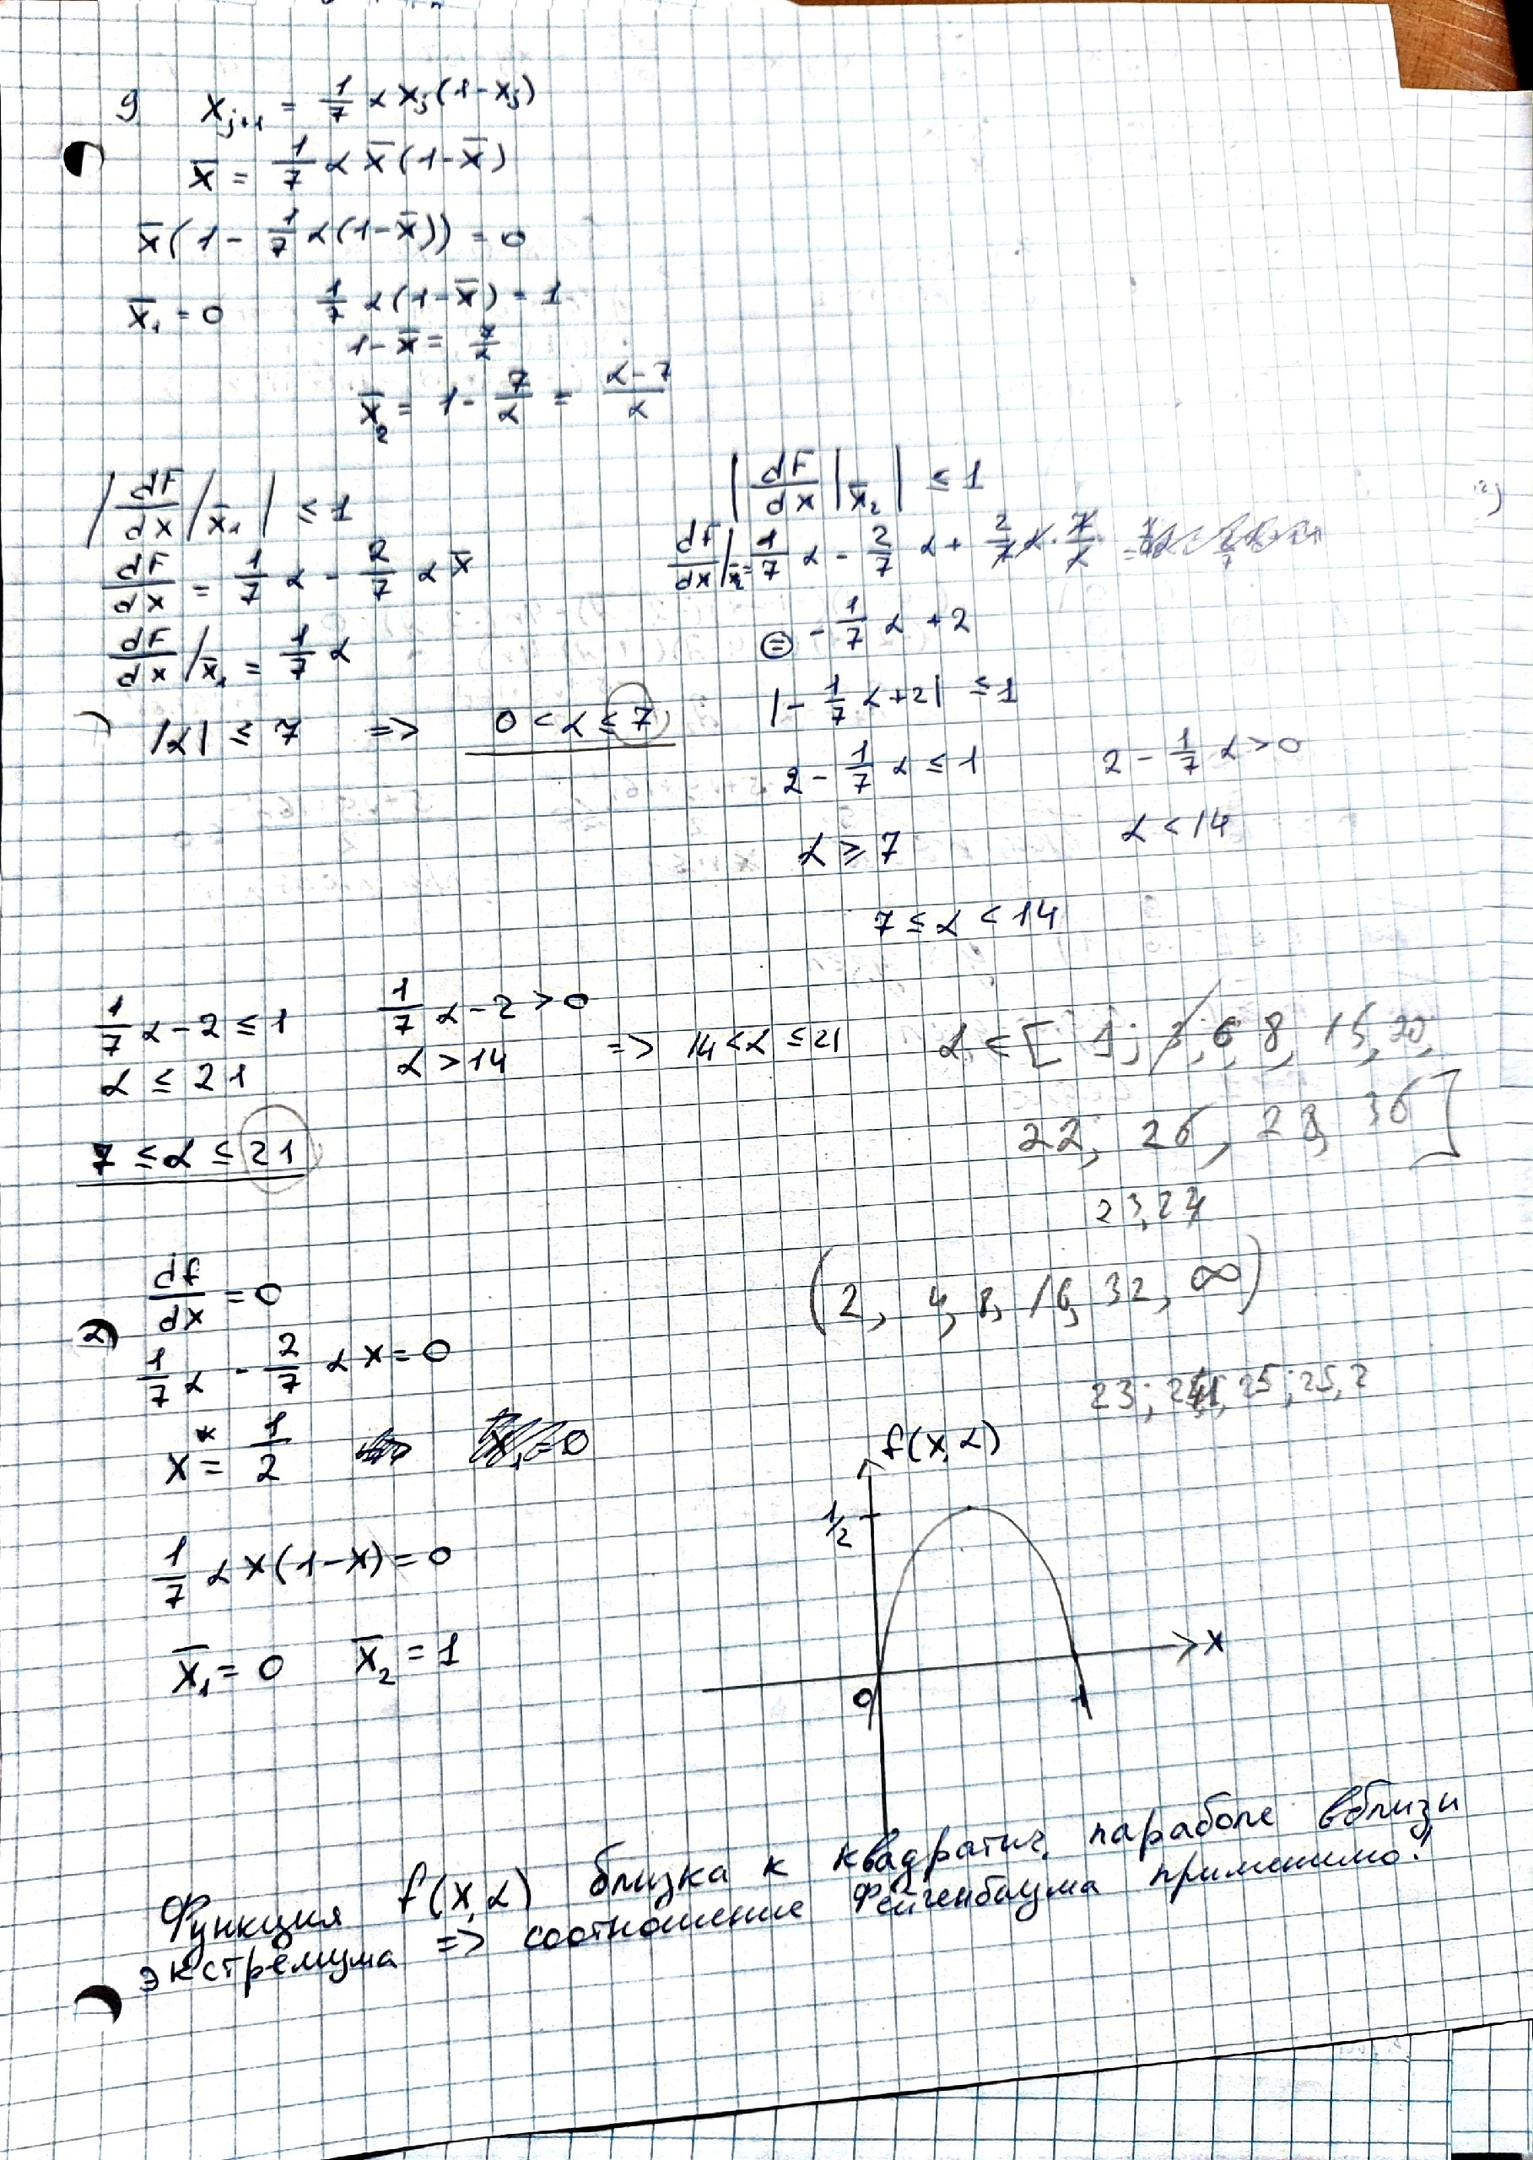 9 x_{j+1} = 1/7 α x_j (1-x_j)
x̄ = 1/7 α x̄ (1-x̄)
x̄ (1 - 1/7 α (1-x̄)) = 0
x̄₁ = 0 1/7 α (1-x̄) = 1
1-x̄ = 7/α
x̄₂ = 1 - 7/α = (α-7)/α
|dF/dx|x̄₁| ≤ 1
dF/dx = 1/7 α - 2/7 α x̄
dF/dx|x̄₁ = 1/7 α
|α| ≤ 7 => 0 < α ≤ 7
|dF/dx|x̄₂| ≤ 1
dF/dx|x̄₂ = 1/7 α - 2/7 α + 2/7 α · 7/α
= - 1/7 α + 2
|- 1/7 α + 2| ≤ 1
2 - 1/7 α ≤ 1 2 - 1/7 α > 0
α ≥ 7 α < 14
7 ≤ α < 14
1/7 α - 2 ≤ 1 1/7 α - 2 > 0
α ≤ 21 α > 14 => 14 < α ≤ 21
7 ≤ α ≤ 21
α ∈ [1; 3, 6, 8, 15, 20,
22, 26, 28, 36]
23,24
(2, 4, 8, 16, 32, ∞)
23; 25; 25,2
2) df/dx = 0
1/7 α - 2/7 α x = 0
x* = 1/2
1/7 α x (1-x) = 0
x̄₁ = 0 x̄₂ = 1
f(x,α)
1/2
x
0
1
Функция f(x,α) близка к квадратич. параболе вблизи
экстремума => соотношение Фейгенбаума применимо!